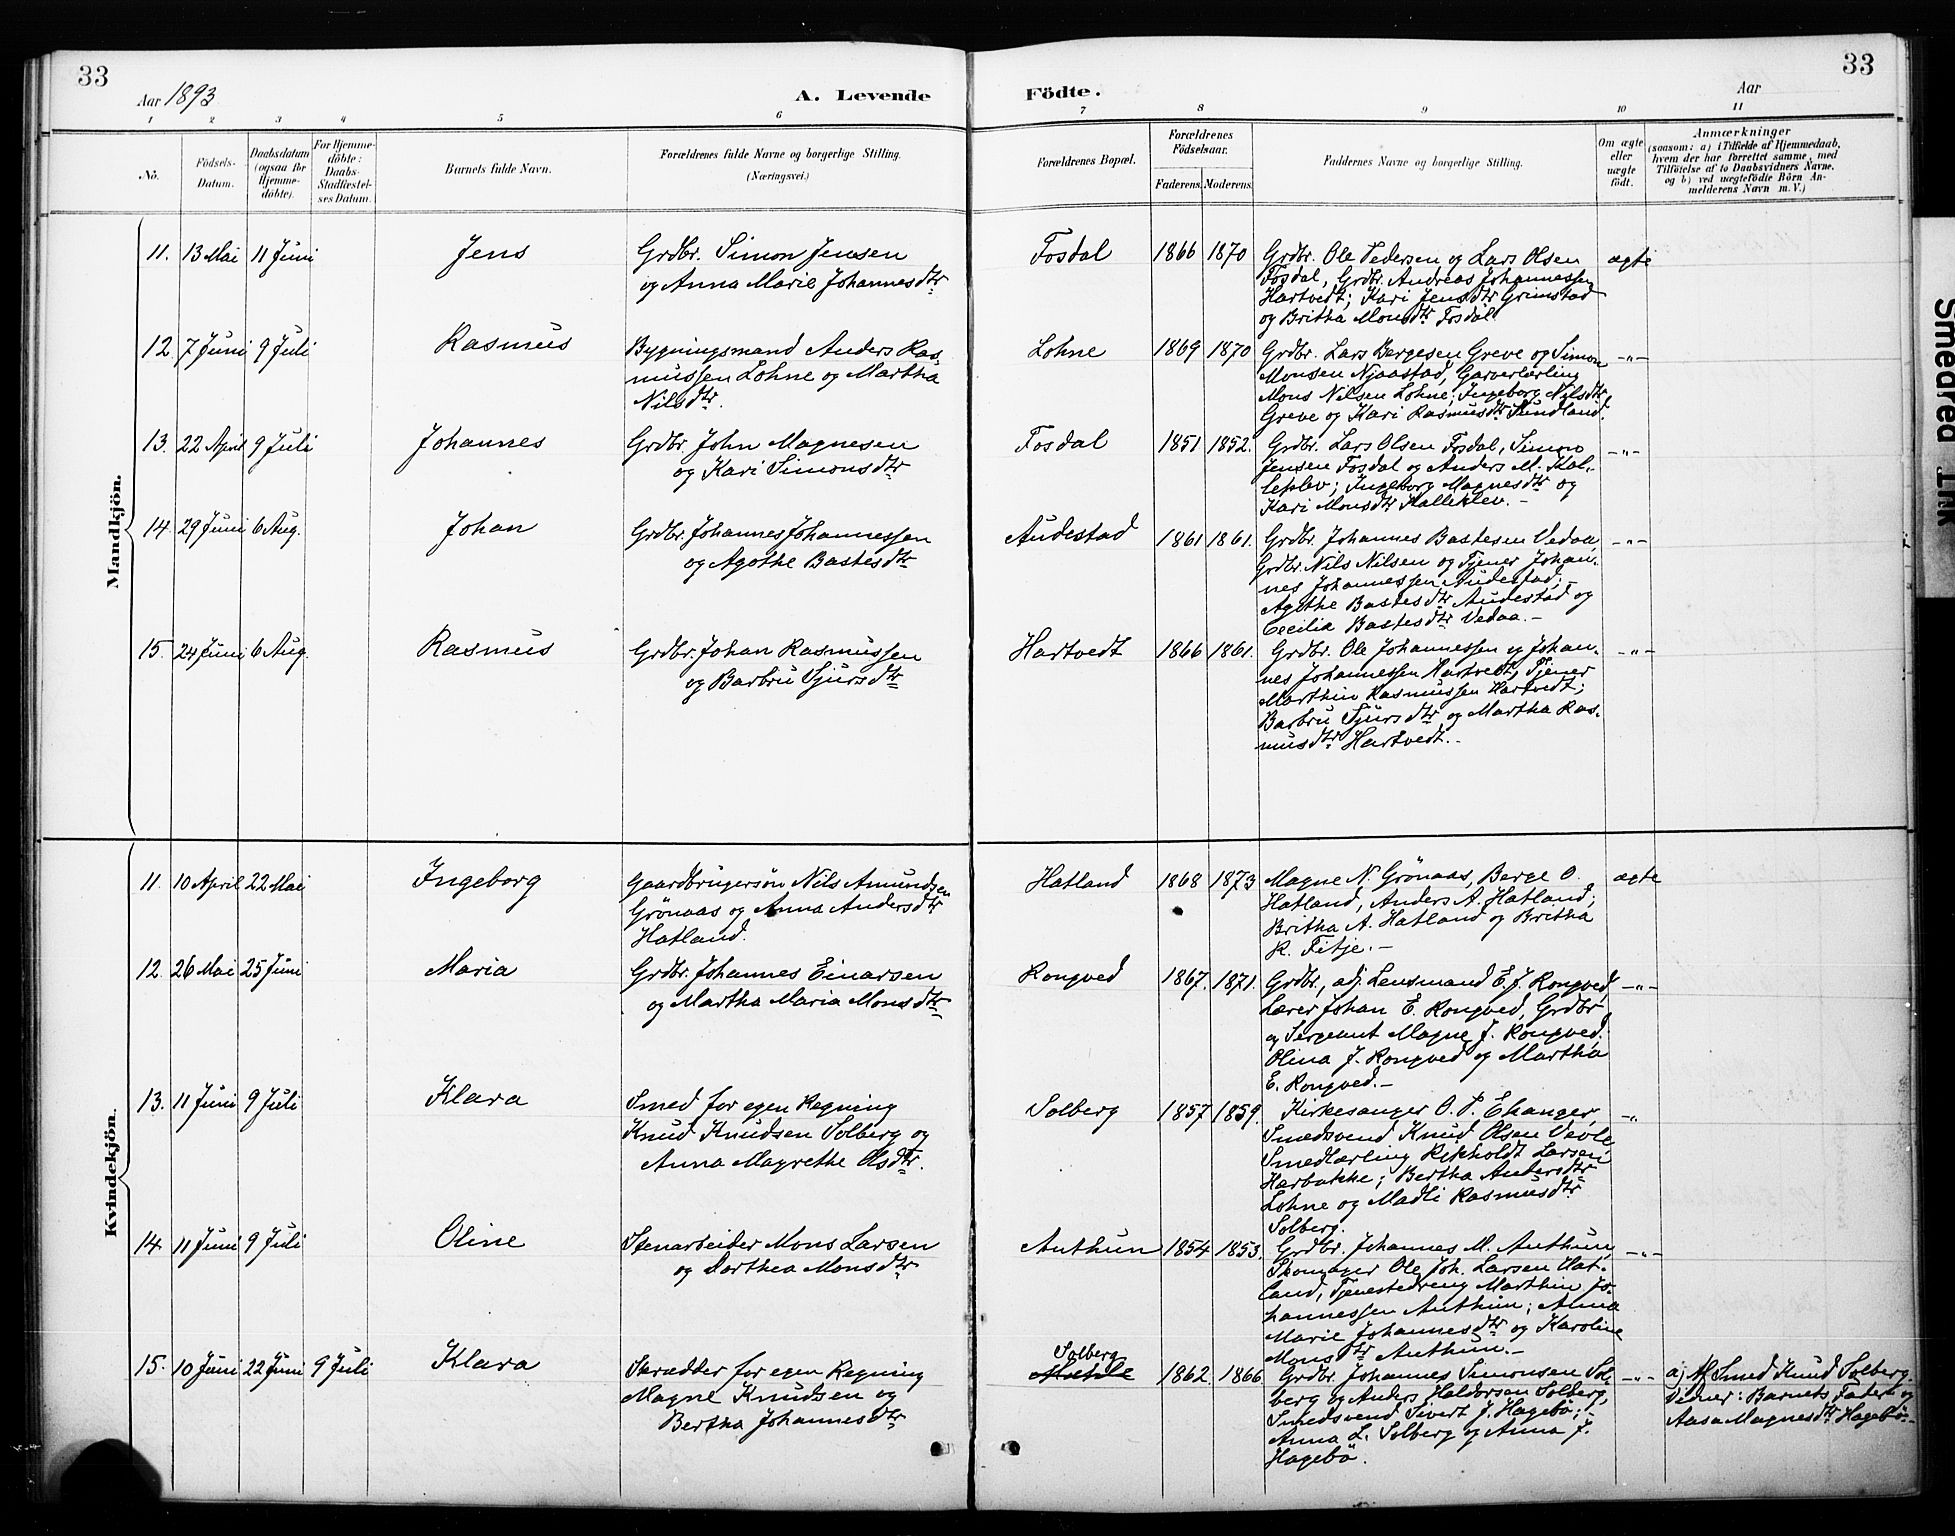 33
Aar 1893
A. Levende
Födte.
Aar
33
1 2 3 4 5 6 7 8 9 10 11
No.
Födsels-
Datum.
Daabsdatum
(ogsaa for
Hjemme-
döbte).
For Hjemme-
döbte:
Daabs-
Stadfæstel-
ses Datum.
Barnets fulde Navn.
Forældrenes fulde Navne og borgerlige Stilling.
(Næringsvei.)
Forældrenes Bopæl.
Forældrenes
Födselsaar.
Faderens. Moderens.
Faddernes Navne og borgerlige Stilling.
Om ægte
eller
uægte
födt.
Anmærkninger
(saasom: a) i Tilfælde af Hjemmedaab,
hvem der har forrettet samme, med
Tilföielse af to Daabsvidners Navne,
og b) ved uægtefödte Börn An-
melderens Navn m. V.)
Mandkjön.
11. 13 Mai 11 Juni Jens
Grdbr. Simon Jensen
og Anna Marie Johannesdtr
Fosdal 1866 1870
Grdbr. Ole Pedersen og Lars Olsen
Fosdal, Grdbr. Andreas Johannessen
Hartvedt; Kari Jensdtr Grimstad
og Britha Monsdtr Fosdal
ægte
12. 7 Juni 9 Juli Rasmus
Bygningsmand Anders Ras-
mussen Lohne og Martha
Nilsdtr.
Lohne 1869 1870
Grdbr. Lars Bergesen Greve og Simon
Monsen Njaastad, Garverlærling
Mons Nilsen Lohne; Ingeborg Nilsdtr
Greve og Kari Rasmusdtr Sundland.
-"-
13. 22 April 9 Juli Johannes
Grdbr. John Magnesen
og Kari Simonsdtr
Fosdal 1851 1852.
Grdbr. Lars Olsen Fosdal, Simon
Jensen Fosdal og Anders M. Kal-
leklev; Ingeborg Magnesdtr og
Kari Monsdtr Kalleklev.-
-"-
14. 29 Juni 6 Aug. Johan
Grdbr. Johannes Johannessen
og Agothe Bastesdtr
Audestad 1861 1861.
Grdbr. Johannes Bastesen Vedaa,
Grdbr. Nils Nilsen og Tjener Johan-
nes Johannessen Audestad;-
Agothe Bastesdtr Audestad og
Cecilia Bastesdtr Vedaa.-
-"-
15. 24 Juni 6 Aug. Rasmus
Grdbr. Johan Rasmussen
og Barbru Sjursdtr
Hartvedt 1866 1861.
Grdbr. Ole Johannessen og Johan-
nes Johannessen Hartvedt, Tjener
Marthin Rasmussen Hartvedt;
Barbru Sjursdtr og Martha Ras-
musdtr Hartvedt.-
-"-
Kvindekjön.
11. 10 April 22 Mai Ingeborg
Gaardbrugersön Nils Amundsen
Grönaas og Anna Andersdtr
Hatland.
Hatland 1868 1873
Magne N. Grönaas, Berge O.
Hatland, Anders A. Hatland;
Britha A. Hatland og Britha
R. Fitje.-
ægte
12. 26 Mai 25 Juni Maria
Grdbr. Johannes Einarsen
og Martha Maria Monsdtr
Rongved 1867. 1871.
Grdbr., adj. Lensmand E. J. Rongved,
Lærer Johan E. Rongved, Grdbr
og Sergeant Magne J. Rongved;
Olina J. Rongved og Martha
E. Rongved.-
-"-
13. 11 Juni 9 Juli Klara
Smed for egen Regning
Knud Knudsen Solberg og
Anna Magrethe Olsdtr.
Solberg 1857 1859.
Kirkesanger O. T. Ekanger,
Smedsvend Knud Olsen Vevle
Smedlærling Rikholdt Larsen
Hærbakke; Bertha Andersdtr
Lohne og Madli Rasmusdtr
Solberg.
-"-
14. 11 Juni 9 Juli Oline
Stenarbeider Mons Larsen
og Dorthea Monsdtr
Anthun 1854 1853.
Grdbr. Johannes M. Anthun,
Skomager Ole Joh. Larsen Hat-
land, Tjenestedreng Marthin Jo-
hannessen Anthun; Anna
Marie Johannesdtr og Karoline
Monsdtr Anthun.-
-"-
15. 10 Juni 22 Juni 9 Juli Klara
Skrædder for egen Regning
Magne Knudsen og
Bertha Johannesdtr
Solberg
1862. 1866
Grdbr. Johannes Simonsen Sol-
berg og Anders Haldorsen Solberg,
Smedsvend Sivert J. Hagebö;-
Anna L. Solberg og Anna J.
Hagebö.
-"-
a) Af Smed Knud Solberg.
Vidner: Barnets Fader og
Aasa Magnesdtr Hagebö-
Smeared Ink